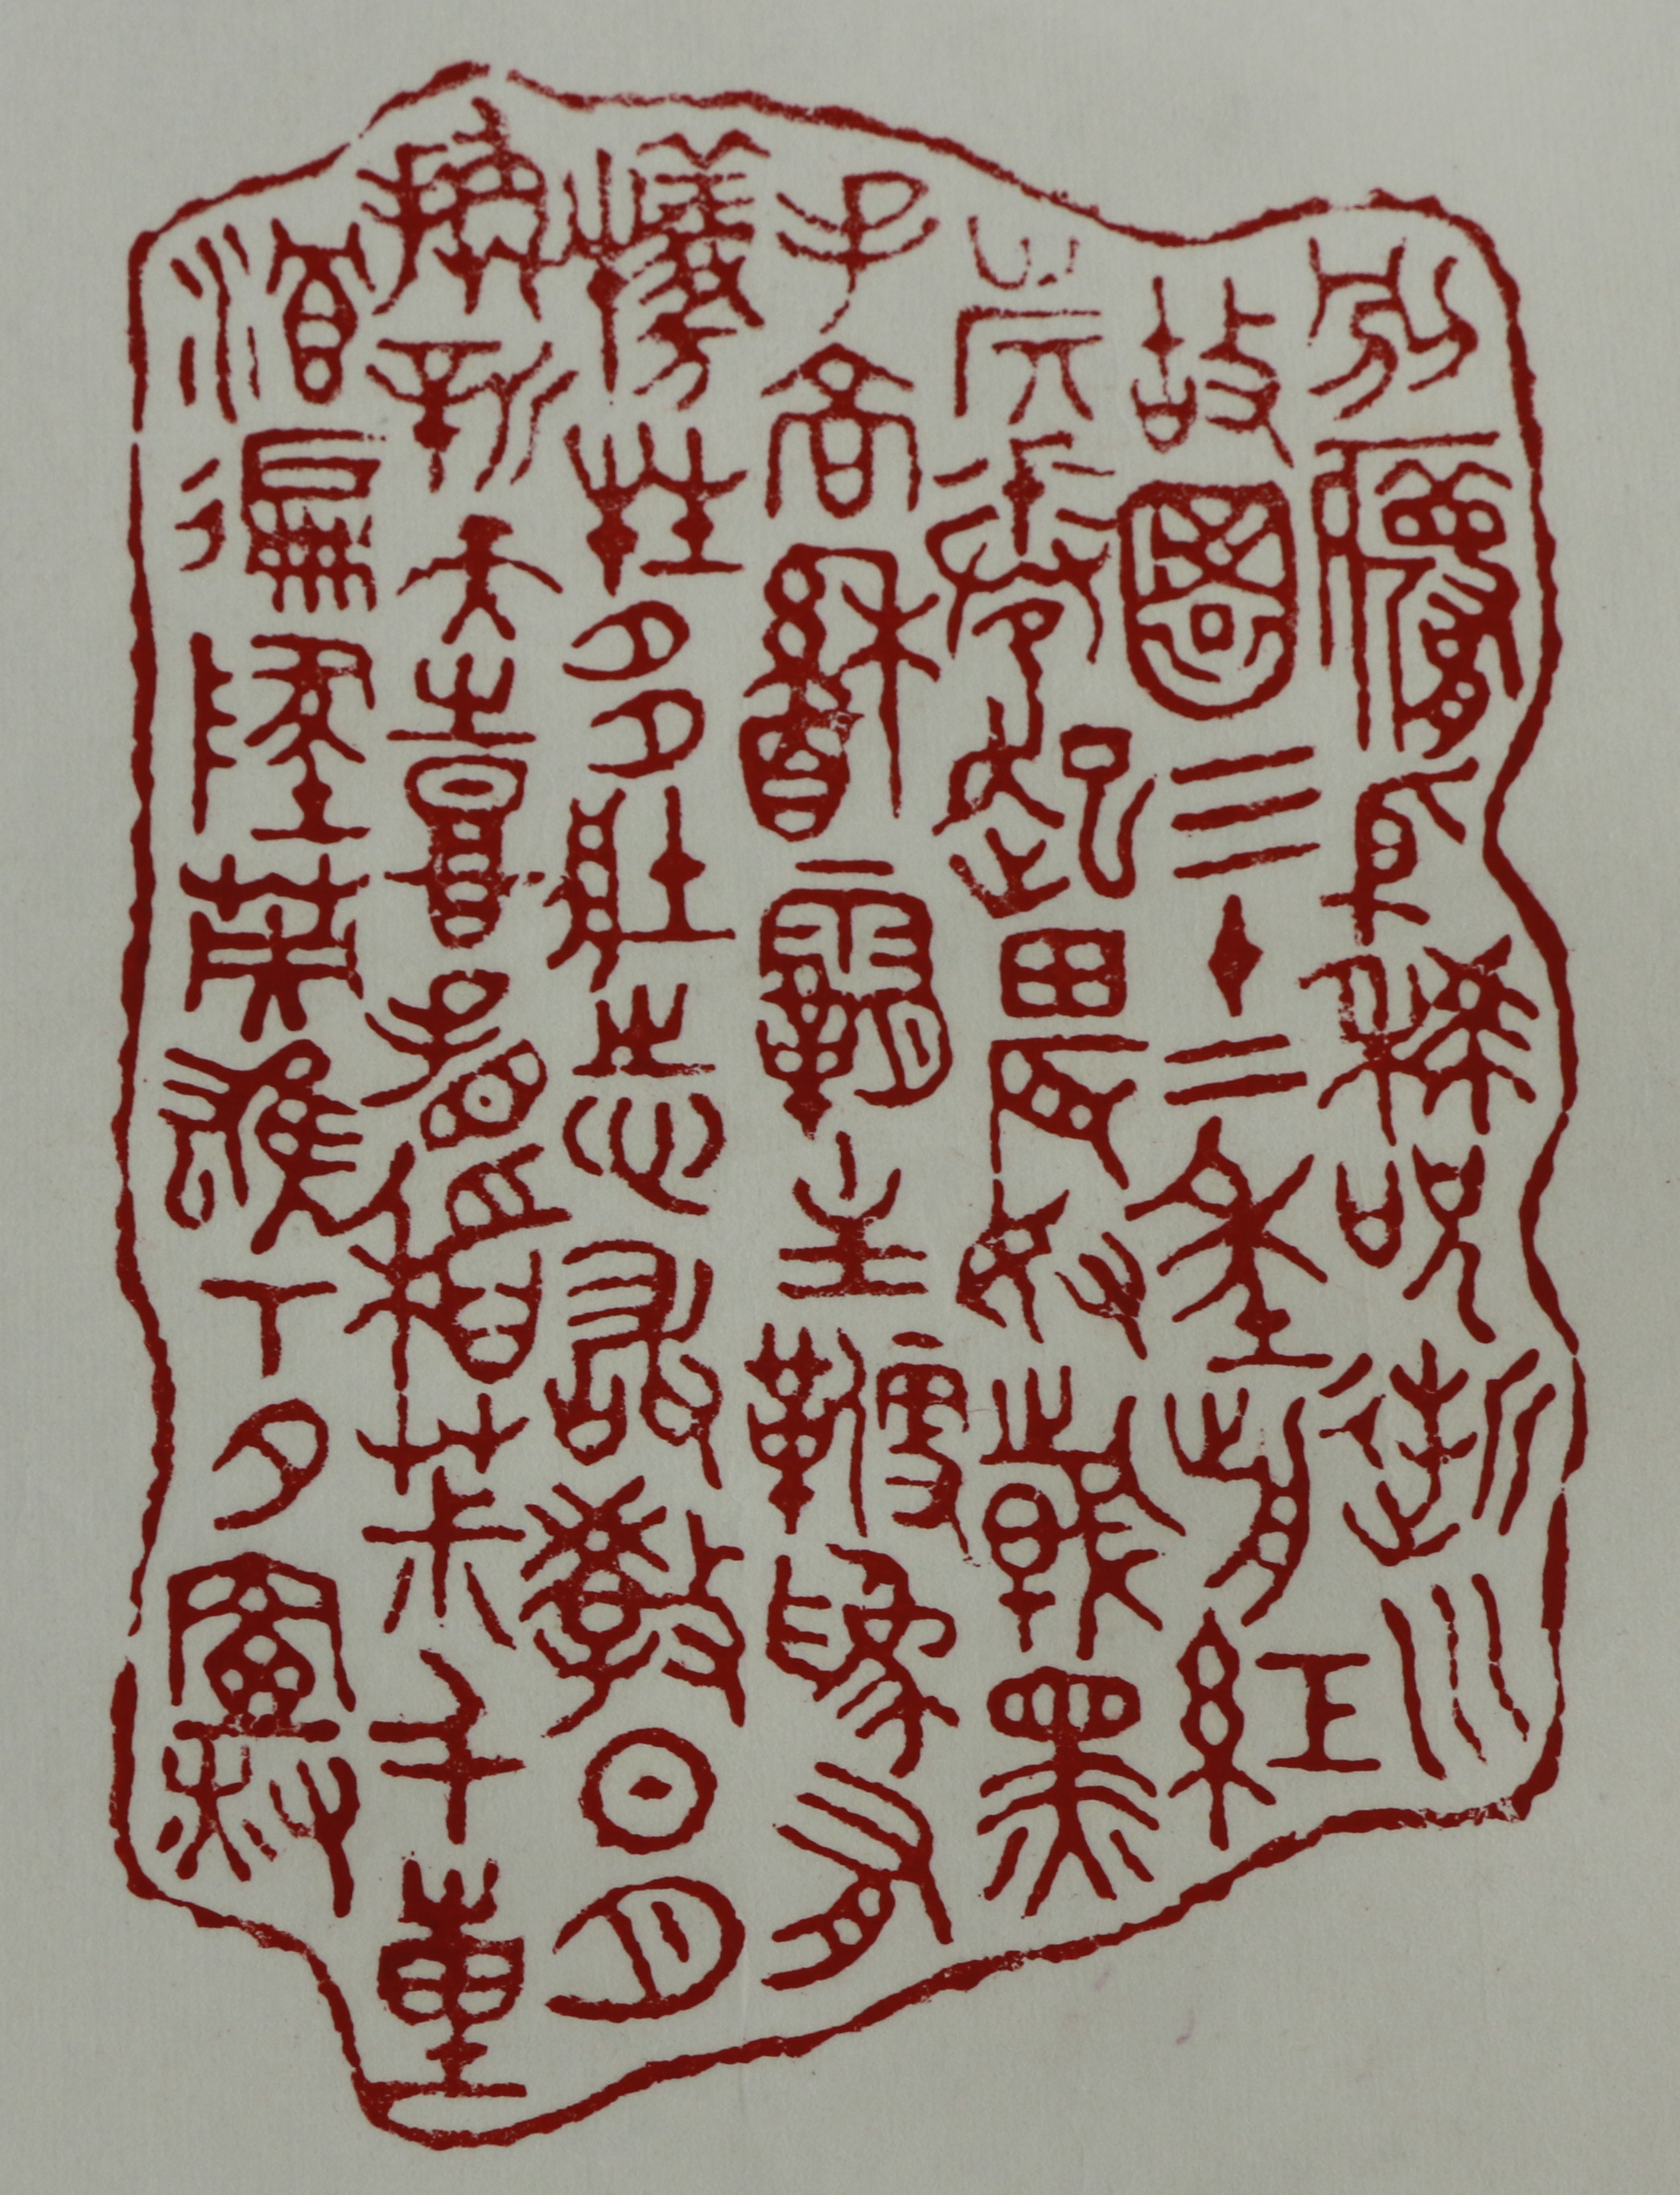 別夢依稀咒逝川
故園三十二年前紅
旗卷起農奴戟黑
手高懸霸主鞭為有
犧牲多壯志敢教日月
換新天喜看稻菽千重
浪遍地英雄下夕煙